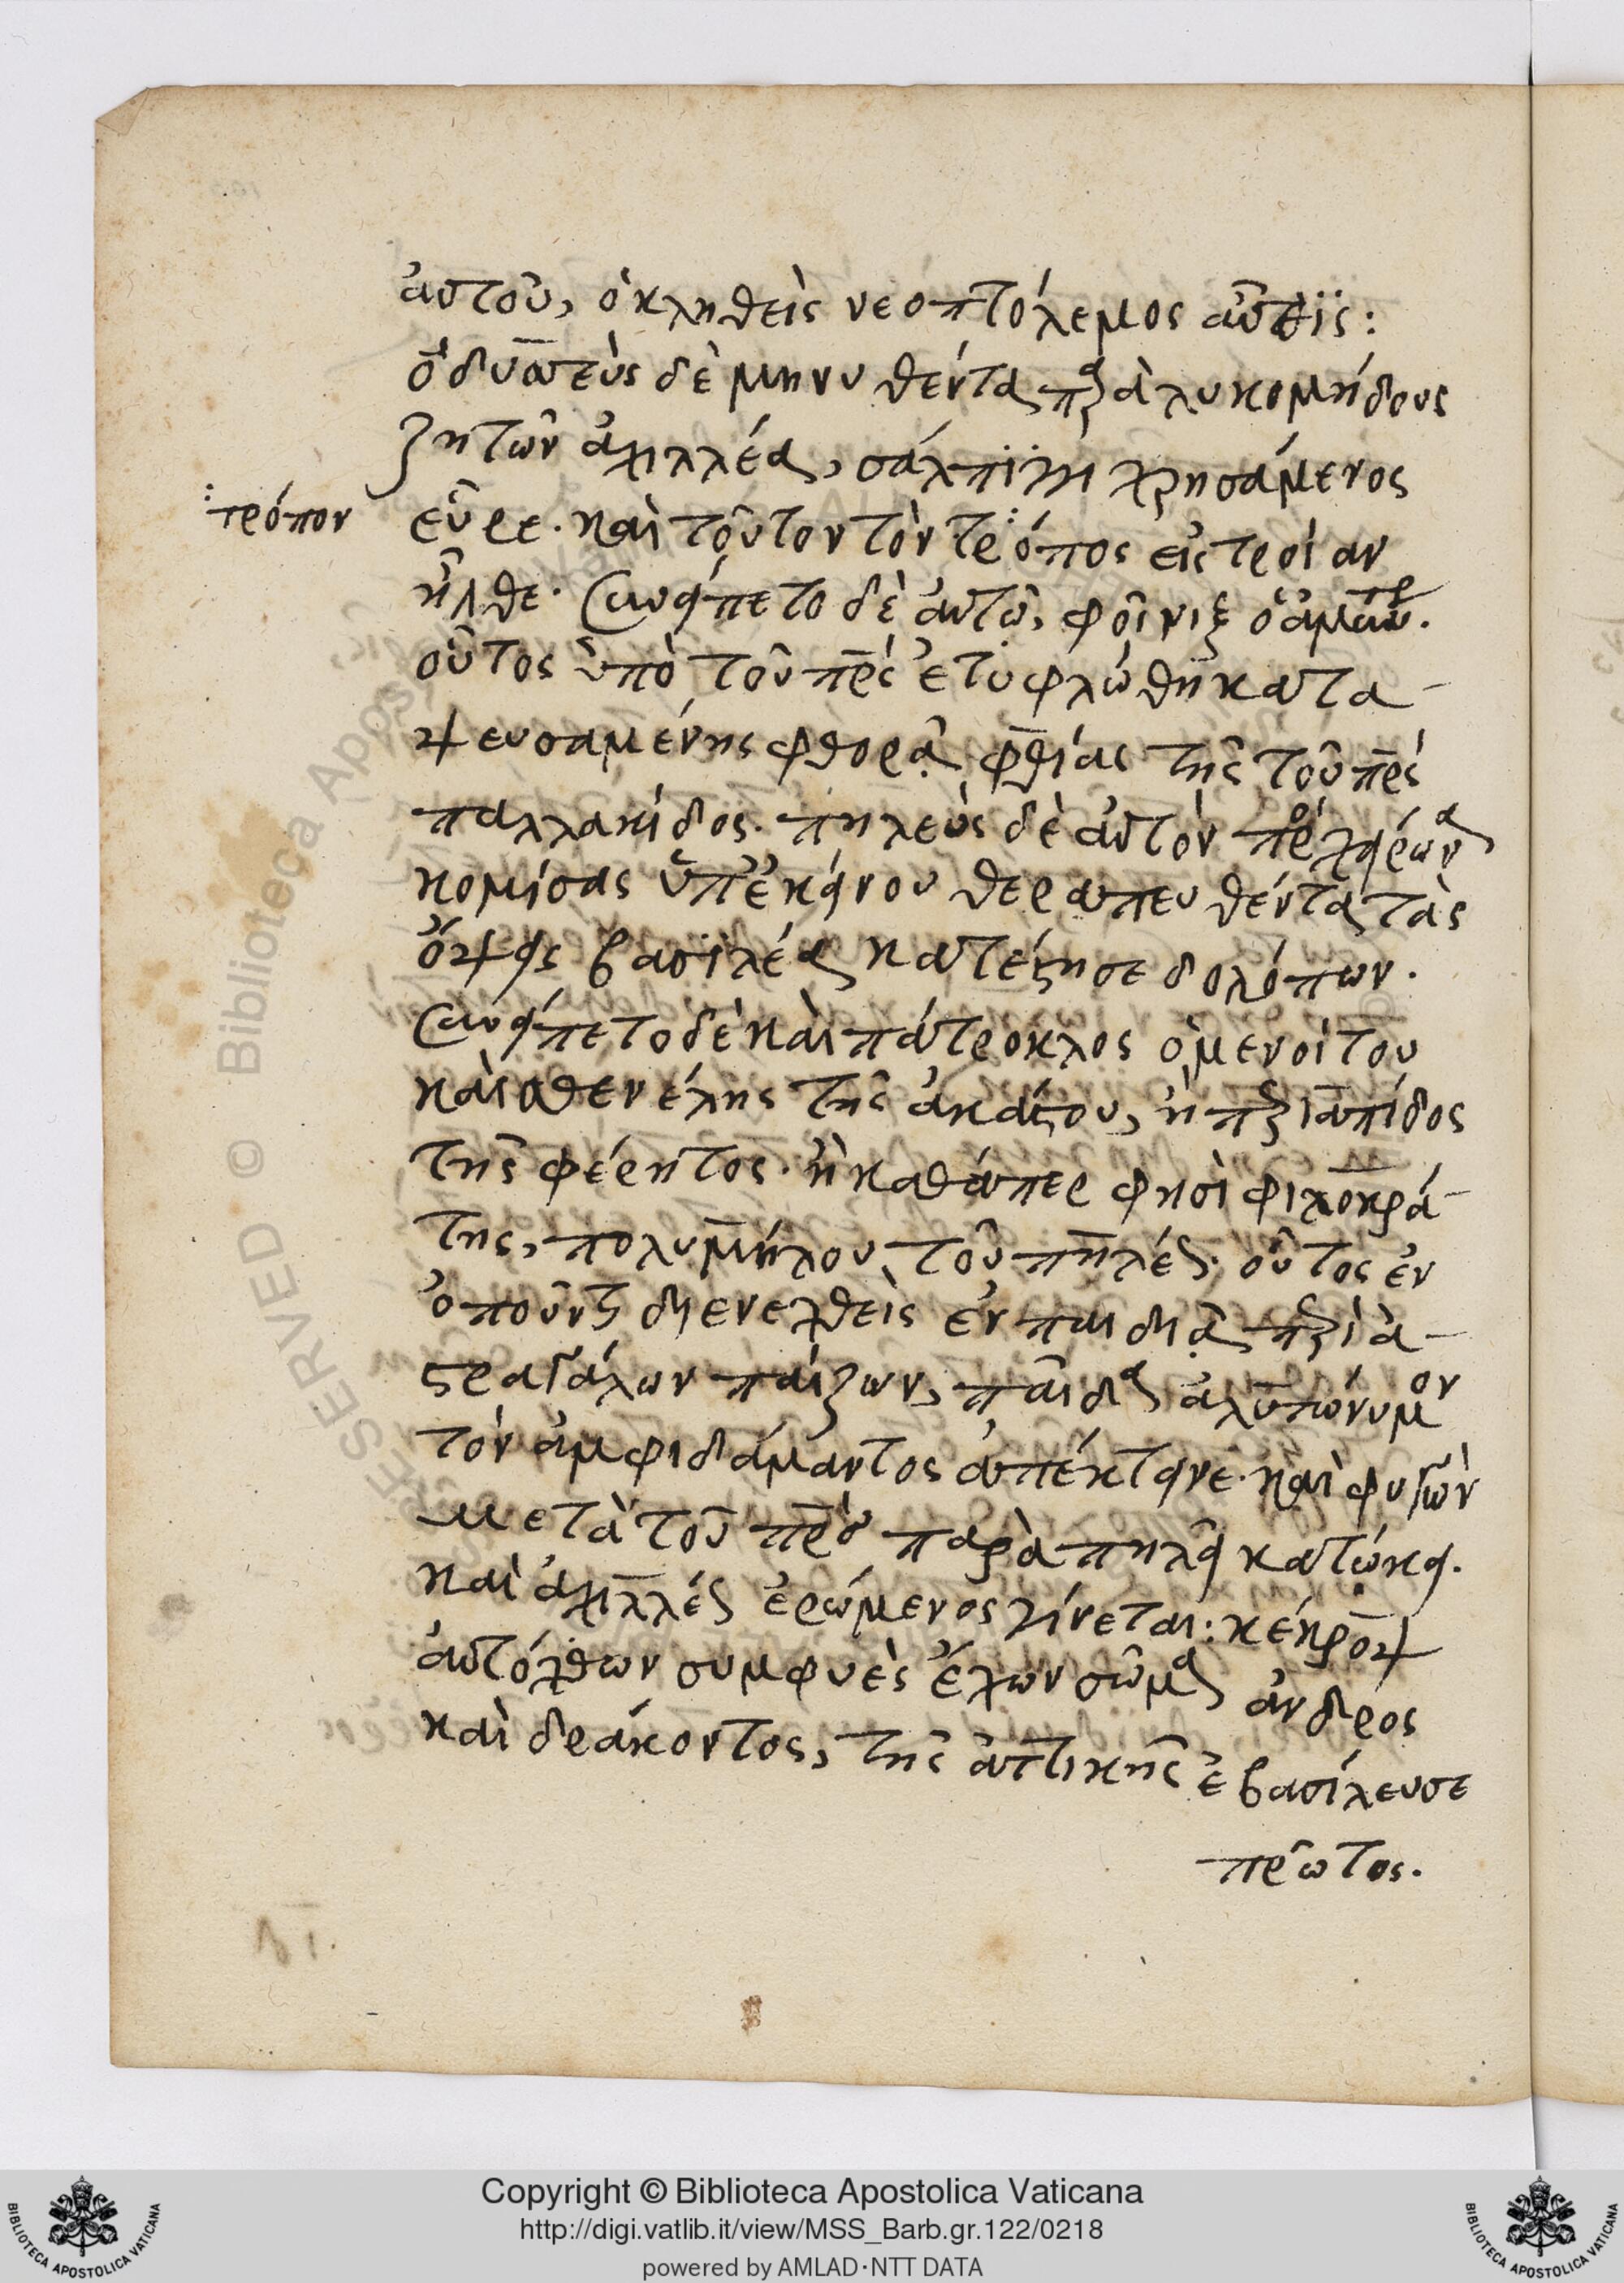 αὐτοῦ, ὁ κληθεὶς νεοπτόλεμος αὖθις:
ὀδυσσεὺς δὲ μηνυθέντα παρὰ λυκομήδους
ζητῶν ἀχιλλέα, σάλπιγγι χρησάμενος
τρόπον
εὗρε. καὶ τοῦτον τὸν τρόπος εἰς τροίαν
ἦλθε. συνείπετο δὲ αὐτῶ, φοῖνιξ ὁ ἀμύντορος.
οὗτος ὑπὸ τοῦ πρς ἐτυφλώθη κατα-
ψευσαμένης φθορὰ φθίας τῆς τοῦ πρς
παλλακίδος. πηλεὺς δὲ αὐτὸν πρὸς χείρωνα
κομίσας ὑπ' ἐκείνου θεραπευθέντα τὰς
ὄψεις βασιλέα κατέστησε δολόπων.
συνείπετο δὲ καὶ πάτροκλος ὁ μενοιτίου
καὶ σθενέλης τῆς ἀκάστου, ἢ περιάπιδος
τῆς φέρητος. ἢ καθάπερ φησὶ φιλοκρά-
της, πολυμήλου τοῦ πηλέως. οὗτος ἐν
ὀποῦντι διενεχθεὶς ἐν παιδιᾷ περὶ ἀ-
στραγάλων παίζων, παῖδα ἀλυπώνυμον
τὸν ἀμφιδάμαντος ἀπέκτεινε. καὶ φυγὼν
μετὰ τοῦ πρς παρὰ πηλεῖ κατώκει.
καὶ ἀχιλλέως ἐρώμενος γίνεται: κέκροψ
αὐτόχθων συμφυὲς ἔχων σῶμα ἀνδρὸς
καὶ δράκοντος, τῆς ἀττικῆς ἐβασίλευσε
πρῶτος.
Biblioteca Apos
RESERVED ©
Copyright © Biblioteca Apostolica Vaticana
http://digi.vatlib.it/view/MSS_Barb.gr.122/0218
powered by AMLAD·NTT DATA
BIBLIOTECA APOSTOLICA VATICANA
BIBLIOTECA APOSTOLICA VATICANA